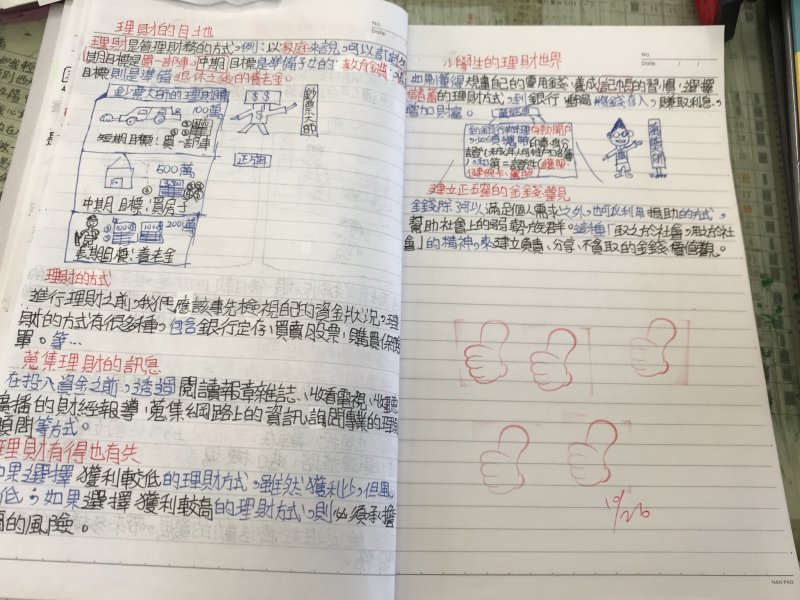 理財的目地
理財是管理財務的方式,例:以家庭來說,可以訂定
短期目標是買一部車,中期目標是準備子女的教育金費,
目標則是準備退休之後的養老金。
鈔票大師的理財目標
100萬
短期目標:買一部車
500萬
中期目標:買房子
2000萬
長期目標:養老金
鈔票大師
$$
理財的方式
進行理財之前,我們應該事先檢視自己的資金狀況。理
財的方式有很多種,包含銀行定存,買賣股票,購買保險
單。等…
蒐集理財的訊息
在投入資金之前,透過閱讀報章雜誌、收看電視、收聽
廣播的財經報導,蒐集網路上的資訊,詢問專業的理財
顧問等方式。
理財有得也有失
如果選擇獲利較低的理財方式,雖然獲利少,但風
低,如果選擇獲利較高的理財方式,則必須承擔
的風險。
No.
Date: / /
小學生的理財世界
規畫自己的零用錢,養成記帳的習慣,選擇
儲蓄的理財方式,到銀行、郵局將錢存入,賺取利息,
增加財富。
建立正確的金錢觀
金錢除了可以滿足個人需求之外,也可以利用捐助的方式,
幫助社會上的弱勢族群。這種「取之於社會,用於社
會」的精神,來建立負責、分享、不貪取的金錢價值觀。
10/26
NAN PAO